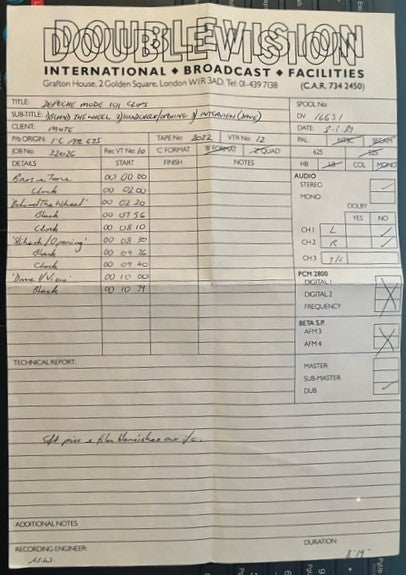 DOUBLEVISION
DOUBLEVISION
INTERNATIONAL ◆ BROADCAST ◆ FACILITIES
Grafton House, 2 Golden Square, London W1R 3AD. Tel: 01-439 7138 (C.A.R. 734 2450)
TITLE: DEPECHE MODE 101 CLIPS SPOOL No:
SUB-TITLE: BEHIND THE WHEEL INTERVIEW (DAVE) DV 16651
CLIENT: MUTE DATE: 8-3-89
P/b ORIGIN: 625 TAPE No: 2022 VTR No: 12 PAL NTSC SECAM
JOB No: 32026 'C' FORMAT 'B' FORMAT 2" QUAD 625 525
DETAILS Rec VT No: 10 START FINISH NOTES HB LB COL MONO
Bars & Tone 00 00 00 AUDIO
Clock 00 02 00 STEREO
'Behind The Wheel' 00 02 20 MONO
Black 00 07 56 DOLBY
Clock 00 08 10 YES NO
Opening' 00 08 30 CH 1 L
Black 00 09 26 CH 2 R
Clock 00 09 40 CH 3 T/C
00 10 00 PCM 2800
Black 00 10 39 DIGITAL 1
DIGITAL 2
FREQUENCY
BETA S.P.
AFM 3
AFM 4
TECHNICAL REPORT: MASTER
SUB-MASTER
DUB
ADDITIONAL NOTES:
RECORDING ENGINEER: DURATION:
8'19"